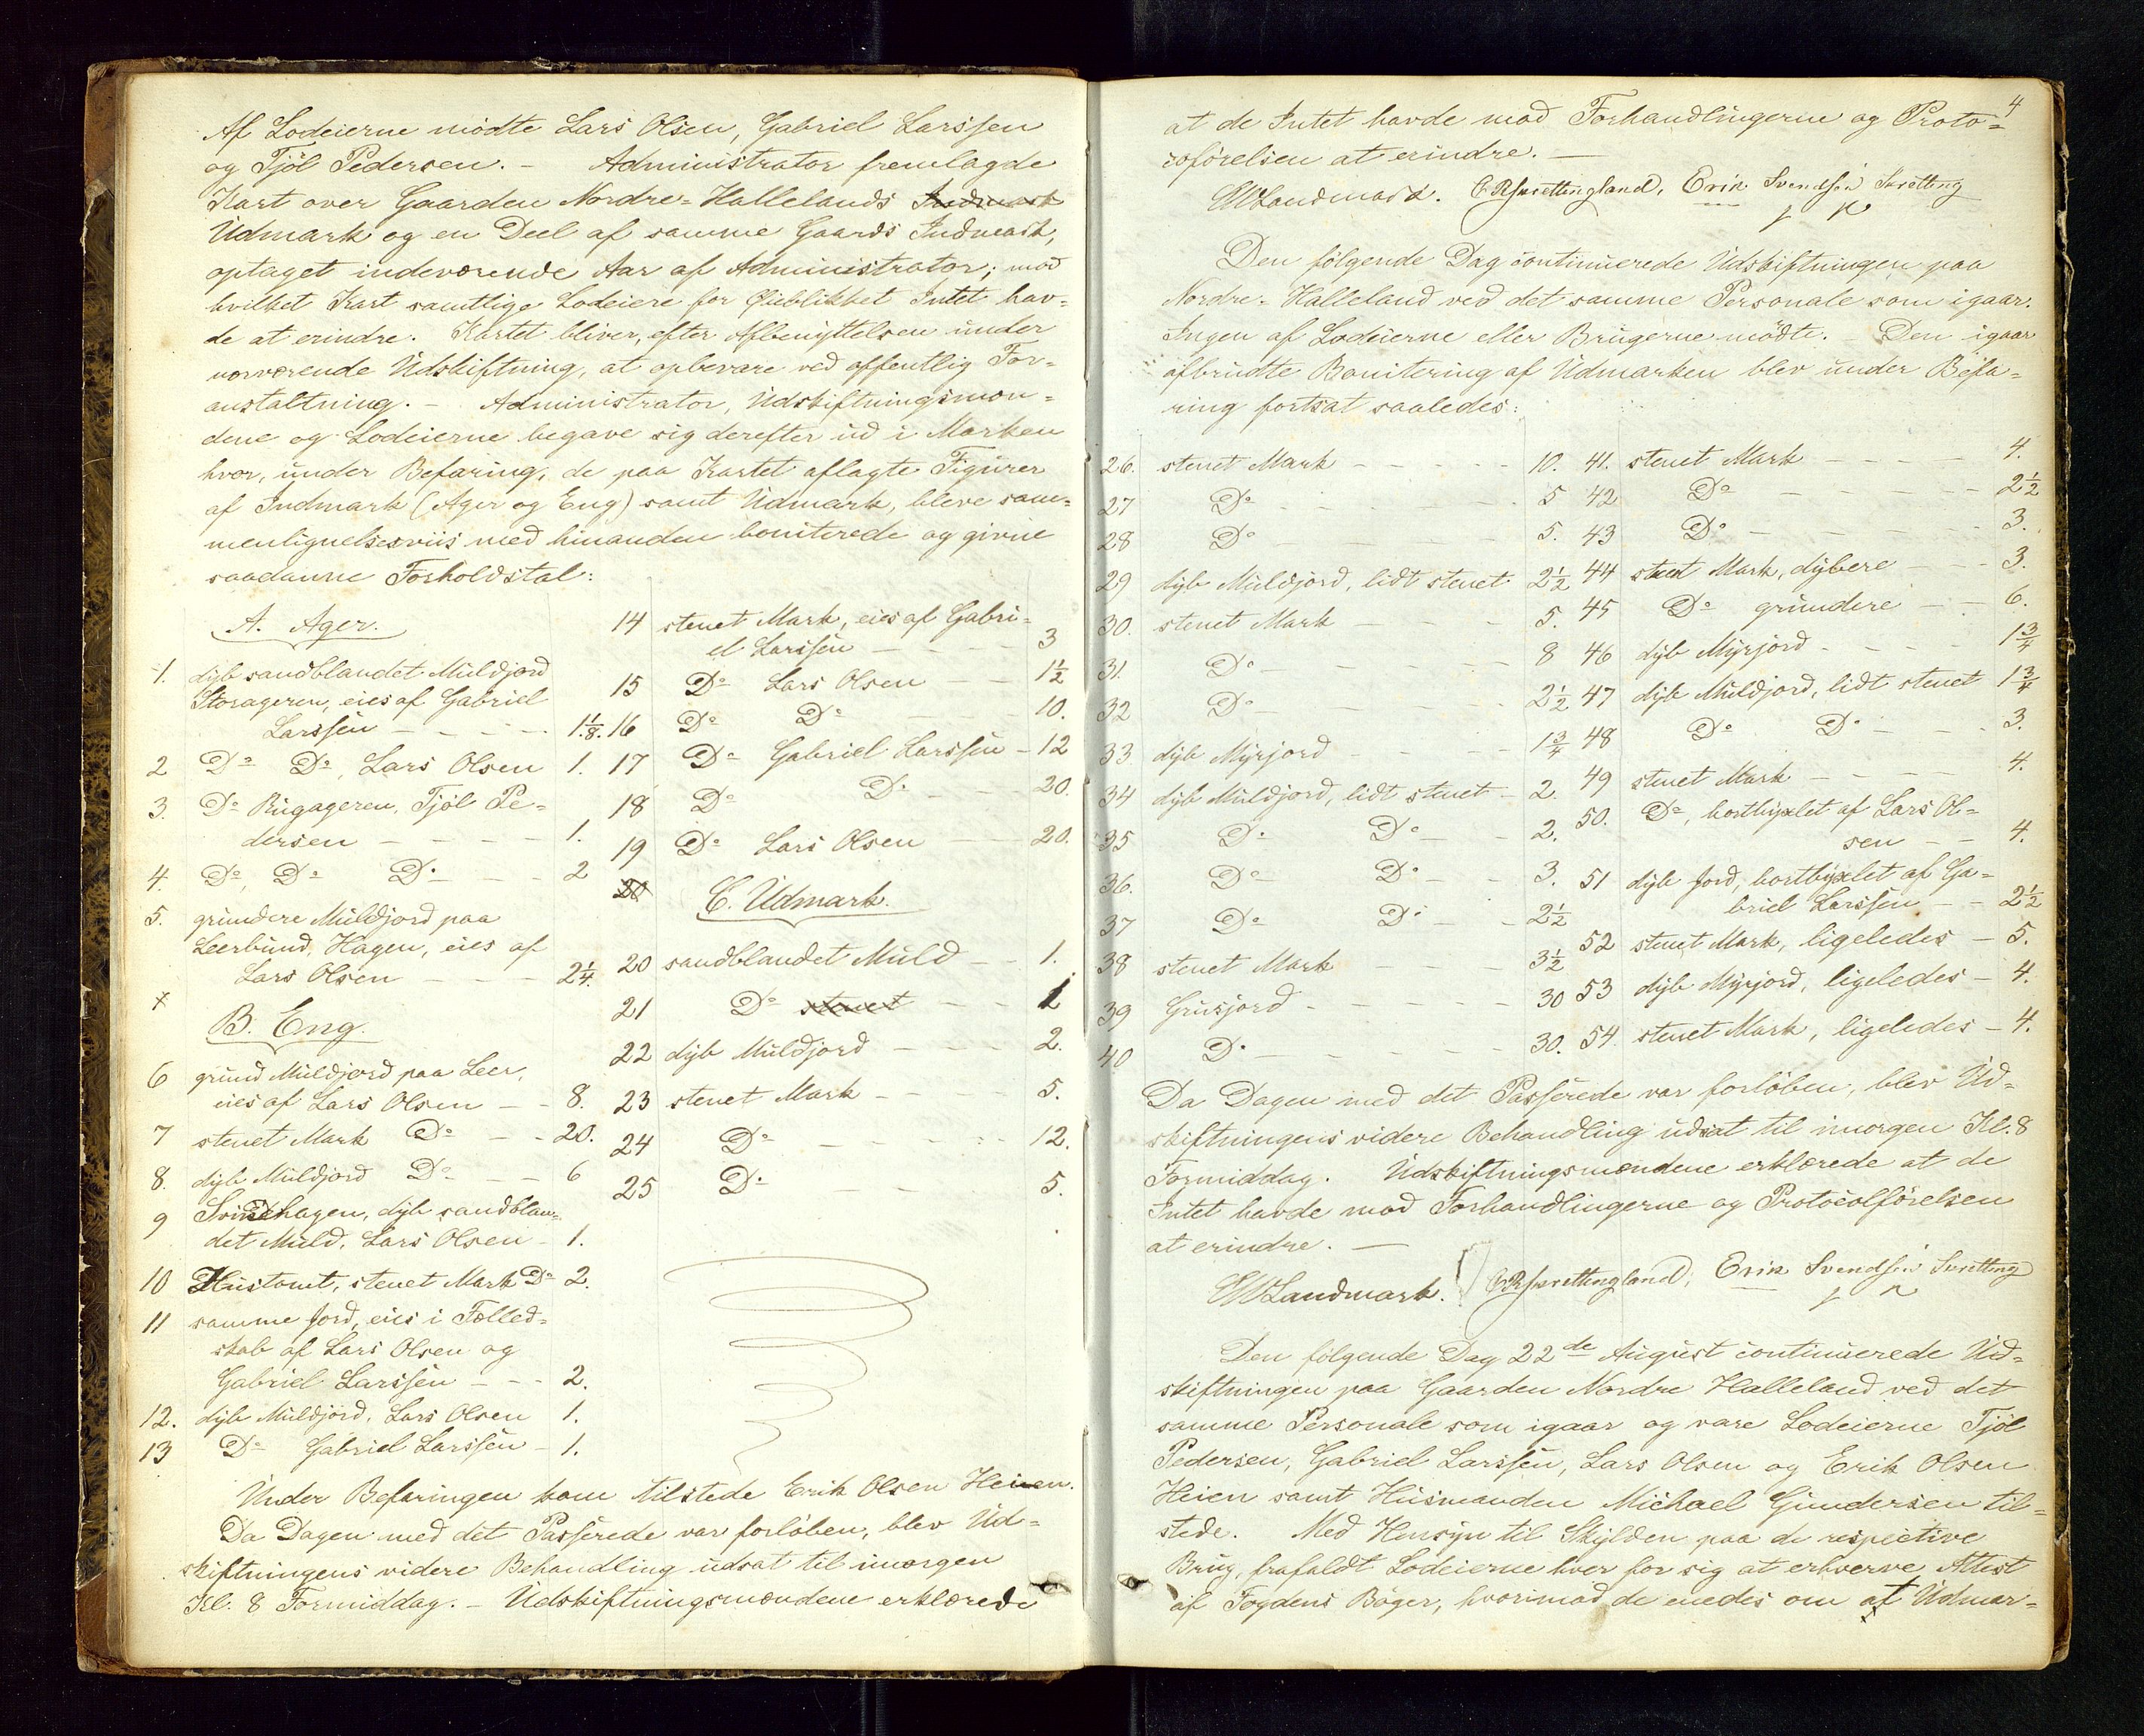 Af Lodeierne mødte Lars Olsen, Gabriel Larssen
og Tjöl Pedersen. – Administrator fremlagde
Kart over Gaarden Nordre-Hallelands Indmark
Udmark og en Deel af samme Gaards Indmark,
optaget indeværende Aar af Administrator; mod
hvilket Kart samtlige Lodeiere for Øieblikket Intet hav-
de at erindre. Kartet bliver, efter Afbenyttelsen under
nærværende Udskiftning, at opbevare ved offentlig For-
anstaltning. – Administrator, Udskiftningsmæn-
dene og Lodeierne begave sig derefter ud i Marken
hvor, under Befaring, de paa Kartet aflagte Figurer
af Indmark (Ager og Eng) samt Udmark, bleve sam-
menlignelsesviis med hinanden boniterede og givne
saadanne Forholdstal:
A. Ager.
1. dyb sandblandet Muldjord
Storageren, eies af Gabriel
Larssen – – – – 1 1/8.
2 Do Do, Lars Olsen 1.
3. Do Rugageren, Tjöl Pe-
dersen – – – – 1.
4. Do, Do Do – – 2
5. grundere Muldjord paa
Leerbund, Hagen, eies af
Lars Olsen – – – 2 1/4.
B. Eng.
6 grund Muldjord paa Leer,
eies af Lars Olsen – – 8.
7 stenet Mark Do – – 20.
8. dyb Muldjord Do – – 6
9 Svinehagen, dyb sandblan-
det Muld, Lars Olsen – 1.
10 Hustomt, stenet Mark Do 2.
11 samme Jord, eies i Fælled-
skab af Lars Olsen og
Gabriel Larssen – – – 2.
12. dyb Muldjord, Lars Olsen 1.
13 Do Gabriel Larssen – 1.
14 stenet Mark, eies af Gabri-
el Larssen – – – – 3
15 Do Lars Olsen – – 1 1/2
16 Do Do – – 10.
17 Do Gabriel Larssen – 12
18 Do Do – – 20.
19 Do Lars Olsen – – 20.
20
C. Udmark.
20 sandblandet Muld – – 1.
21 Do stenet – – 1
22 dyb Muldjord – – – 2.
23 stenet Mark – – – 5.
24 Do – – – – 12.
25 Do – – – 5.
Under Befaringen kom tilstede Erik Olsen Heien.
Da Dagen med det Passerede var forløben, blev Ud-
skiftningens videre Behandling udsat til imorgen
Kl. 8 Formiddag. – Udskiftningsmændene erklærede
4
at de Intet havde mod Forhandlingerne og Proto-
coførelsen at erindre. –
EWLandmark. Erik Svendsen Sætting
Den følgende Dag continuerede Udskiftningen paa
Nordre-Halleland ved det samme Personale som igaar.
Ingen af Lodeierne eller Brugerne mødte. – Den igaar
afbrudte Bonitering af Udmarken blev under Befa-
ring fortsat saaledes:
26. stenet Mark – – – – 10.
27 Do – – – – 5
28 Do – – – – 5.
29 dyb Muldjord, lidt stenet 2 1/2
30. stenet Mark – – – 5.
31. Do – – – – 8
32 Do – – – – 2 1/2
33 dyb Myrjord – – – 1 3/4
34 dyb Muldjord, lidt stenet – 2.
35 Do Do – – 2.
36. Do Do – – 3.
37 Do Do – – 2 1/2
38 stenet Mark – – – 3 1/2
39 Grusjord – – – – 30
40 Do – – – – 30.
41. stenet Mark – – – – 4.
42 Do – – – – 2 1/2
43 Do – – – – 3.
44 stenet Mark, dybere – – – 3.
45 Do grundere – – 6.
46 dyb Myrjord – – – – 1 3/4
47 dyb Muldjord, lidt stenet 1 3/4
48 Do Do – – – 3.
49 stenet Mark – – – – 4.
50. Do, bortbyxlet af Lars Ol-
sen – – 4.
51 dyb Jord, bortbyxlet af Ga-
briel Larssen – – 2 1/2
52 stenet Mark, ligeledes – 5.
53 dyb Myrjord, ligeledes – 4.
54. stenet Mark, ligeledes – 4.
Da Dagen med det Passerede var forløben, blev Ud-
skiftningens videre Behandling udsat til imorgen Kl. 8
Formiddag. Udskiftningsmændene erklærede at de
Intet havde mod Forhandlingerne og Protocolførelsen
at erindre. –
EWLandmark. Erik Svendsen Sætting
Den følgende Dag 22de August continuerede Ud-
skiftningen paa Gaarden Nordre Halleland ved det
samme Personale som igaar og vare Lodeierne Tjöl
Pedersen, Gabriel Larssen, Lars Olsen og Erik Olsen
Heien samt Husmanden Michael Gundersen til-
stede. Med Hensyn til Skylden paa de respective
Brug, frafaldt Lodeierne hver for sig at erhverve Attest
af Fogdens Bøger, hvorimod de enedes om at Udmar-